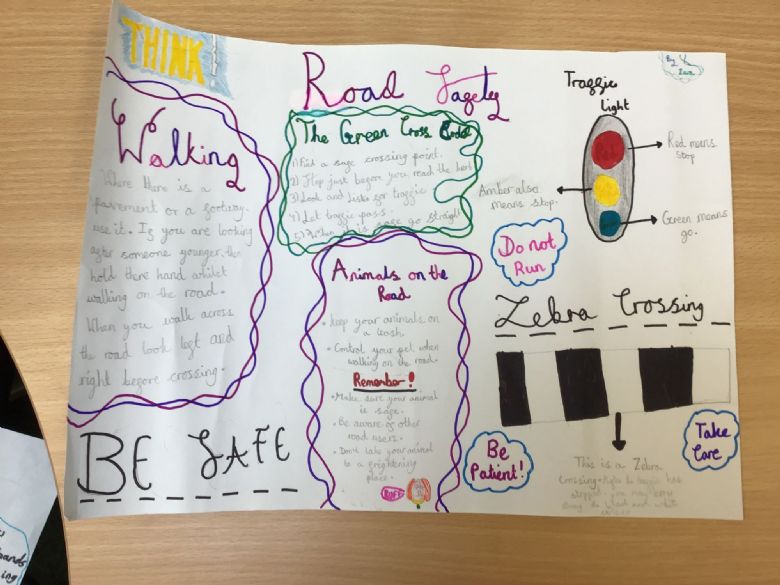 THINK!
Road Safety
By
Zara
Walking
Where there is a
pavement or a footway
use it. If you are looking
after someone younger, then
hold there hand whilst
walking on the road.
When you walk across
the road look left and
right before crossing.
BE SAFE
The Green Cross Code
1) Find a safe crossing point.
2) Stop just before you reach the kerb
3) Look and listen for traffic
4) Let traffic pass.
5) When it is safe go straight
Animals on the
Road
• keep your animals on
a leash.
• Control your pet when
walking on the road.
Remember!
• Make sure your animal
is safe.
• Be aware of other
road users.
• Dont take your animal
to a frightening
place.
RUFF
Traffic
light
Red
Red means
stop
Amber also
means stop.
Green means
go.
Do not
Run
Zebra Crossing
Be
Patient!
Take
Care
This is a Zebra
Crossing. the traffic has
stopped. you may
the black and white
hands
ing